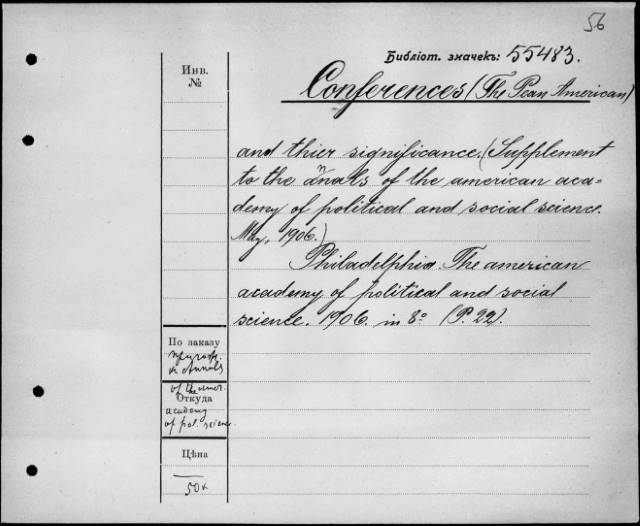 56
Библіот. значекъ: 55483.
Инв.
№
Conferences (The Pean American)
and thier significance. (Supplement
to the annals of the american aca=
demy of political and social science.
May, 1906.)
Philadelphia. The american
academy of political and social
science. 1906. in 8º (P. 22).
По заказу
к Annals
of the Amer.
Откуда
academy
of pol. science
Цѣна
50к